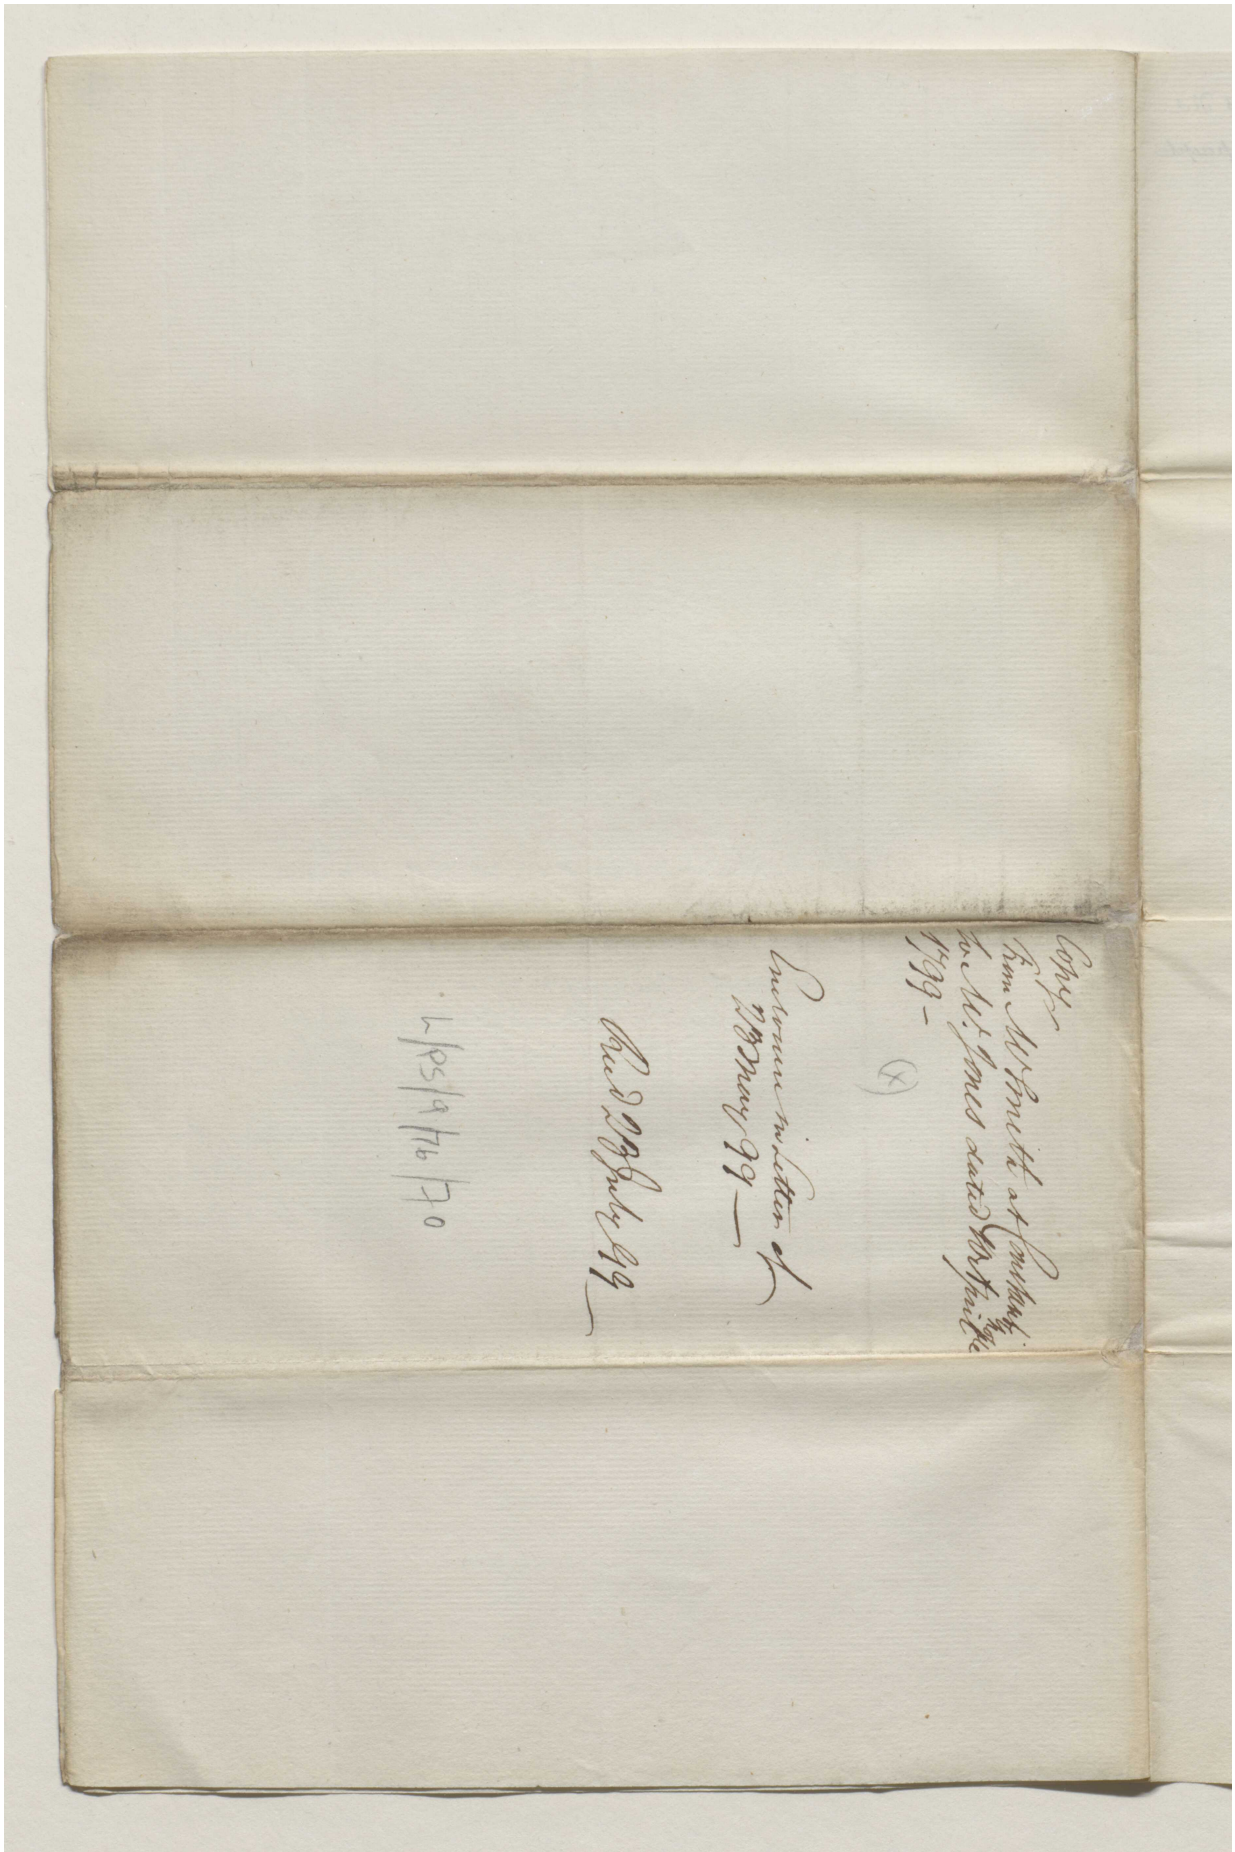 Copy
from Mr Smith at Constant.
to Mr. Jones dated April
1799 –
(X)
Enclosure in Letter of
23 May 99 —
Recd 29 July 99 —
L/PS/9/76/70